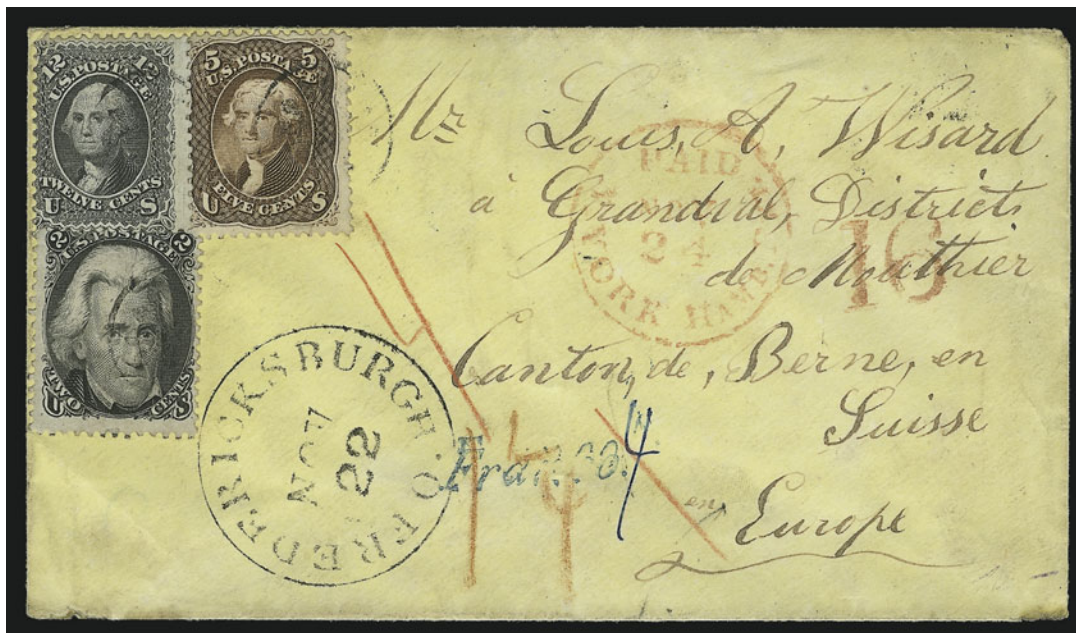 12 12
U.S. POSTAGE
TWELVE CENTS
U S
5 5
U.S. POSTAGE
FIVE CENTS
U S
2 2
U.S. POSTAGE
TWO CENTS
U S
Mr Louis, A, Wisard
à Grandval, District
de Mouthier
Canton, de, Berne, en
Suisse
en Europe
PAID
24
YORK HAMB
16
FREDERICKSBURGH. O.
NOV
22
Franco.
4